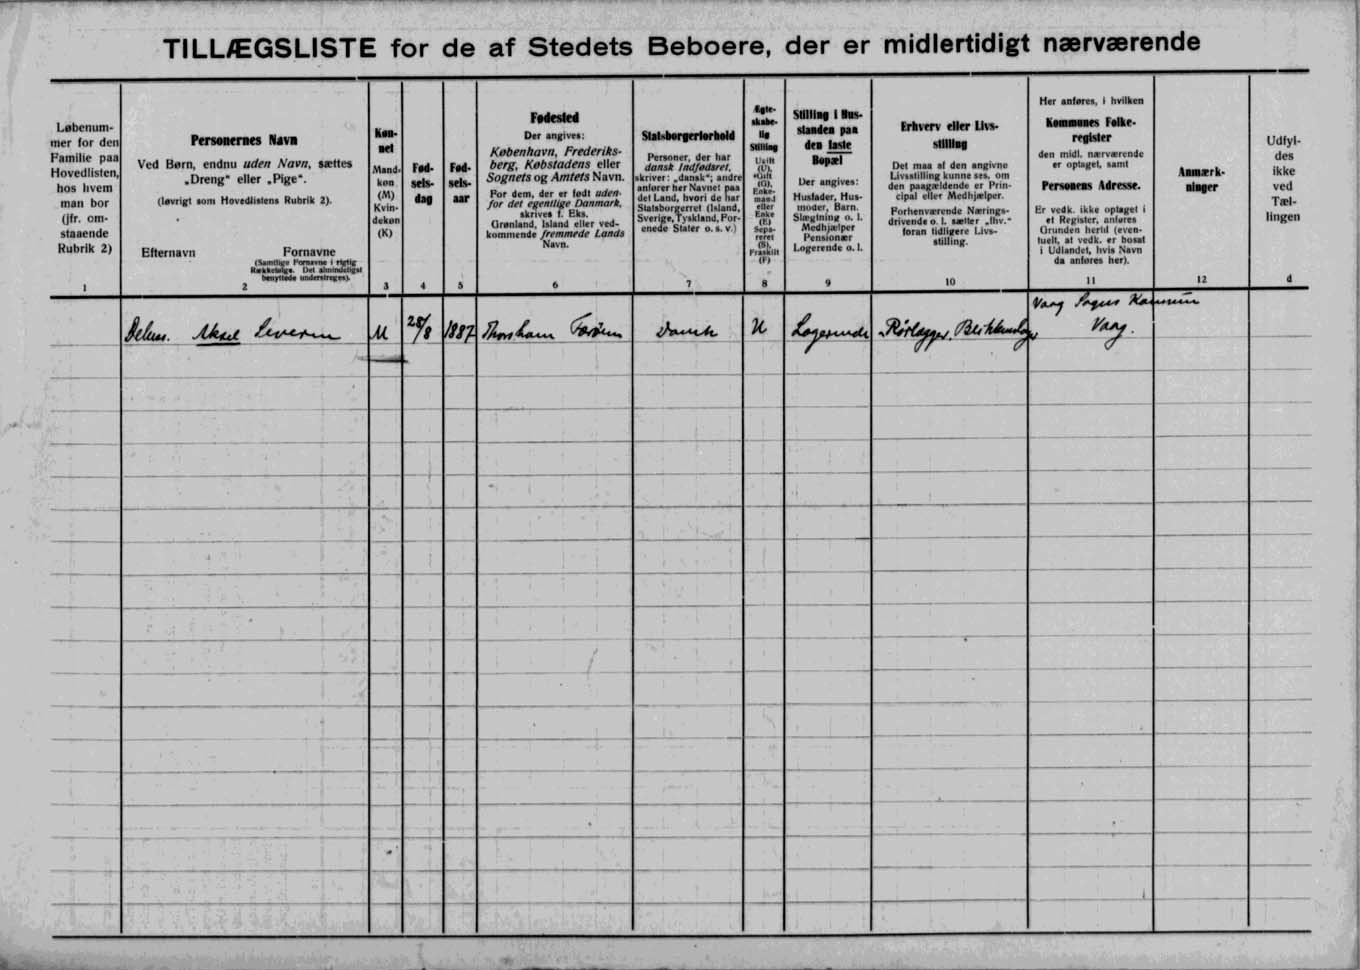 TILLÆGSLISTE for de af Stedets Beboere, der er midlertidigt nærværende
Løbenum-
mer for den
Familie paa
Hovedlisten,
hos hvem
man bor
(jfr. om-
staaende
Rubrik 2)
1
Personernes Navn
Ved Børn, endnu uden Navn, sættes
„Dreng“ eller „Pige“.
(Iøvrigt som Hovedlistens Rubrik 2).
Efternavn
Fornavne
(Samtlige Fornavne i rigtig
Rækkefølge. Det almindeligst
benyttede understreges).
2
Køn-
net
Mand-
køn
(M)
Kvin-
dekøn
(K)
3
Fød-
sels-
dag
4
Fød-
sels-
aar
5
Fødested
Der angives:
København, Frederiks-
berg, Købstadens eller
Sognets og Amtets Navn.
For dem, der er født uden-
for det egentlige Danmark,
skrives f. Eks.
Grønland, Island eller ved-
kommende fremmede Lands
Navn.
6
Statsborgerforhold
Personer, der har
dansk Indfødsret,
skriver: „dansk“; andre
anfører her Navnet paa
det Land, hvori de har
Statsborgerret (Island,
Sverige, Tyskland, For-
enede Stater o. s. v.)
7
Ægte-
skabe-
lig
Stilling
Ugift
(U),
Gift
(G),
Enke-
mand
eller
Enke
(E)
Sepa-
reret
(S),
Fraskilt
(F)
8
Stilling i Hus-
standen paa
den faste
Bopæl
Der angives:
Husfader, Hus-
moder, Barn,
Slægtning o. l.
Medhjælper
Pensionær
Logerende o. l.
9
Erhverv eller Livs-
stilling
Det maa af den angivne
Livsstilling kunne ses, om
den paagældende er Prin-
cipal eller Medhjælper.
Forhenværende Nærings-
drivende o. l. sætter „fhv.“
foran tidligere Livs-
stilling.
10
Her anføres, i hvilken
Kommunes Folke-
register
den midl. nærværende
er optaget, samt
Personens Adresse.
Er vedk. ikke optaget i
et Register, anføres
Grunden hertil (even-
tuelt, at vedk. er bosat
i Udlandet, hvis Navn
da anføres her).
11
Anmærk-
ninger
12
Udfyl-
des
ikke
ved
Tæl-
lingen
d
Vaag Sogns Kommune
Aksel Severin M 28/8 1887 Thorshavn Færøerne Dansk U Logerende Rørlægger, Blikkenslager Vaag.